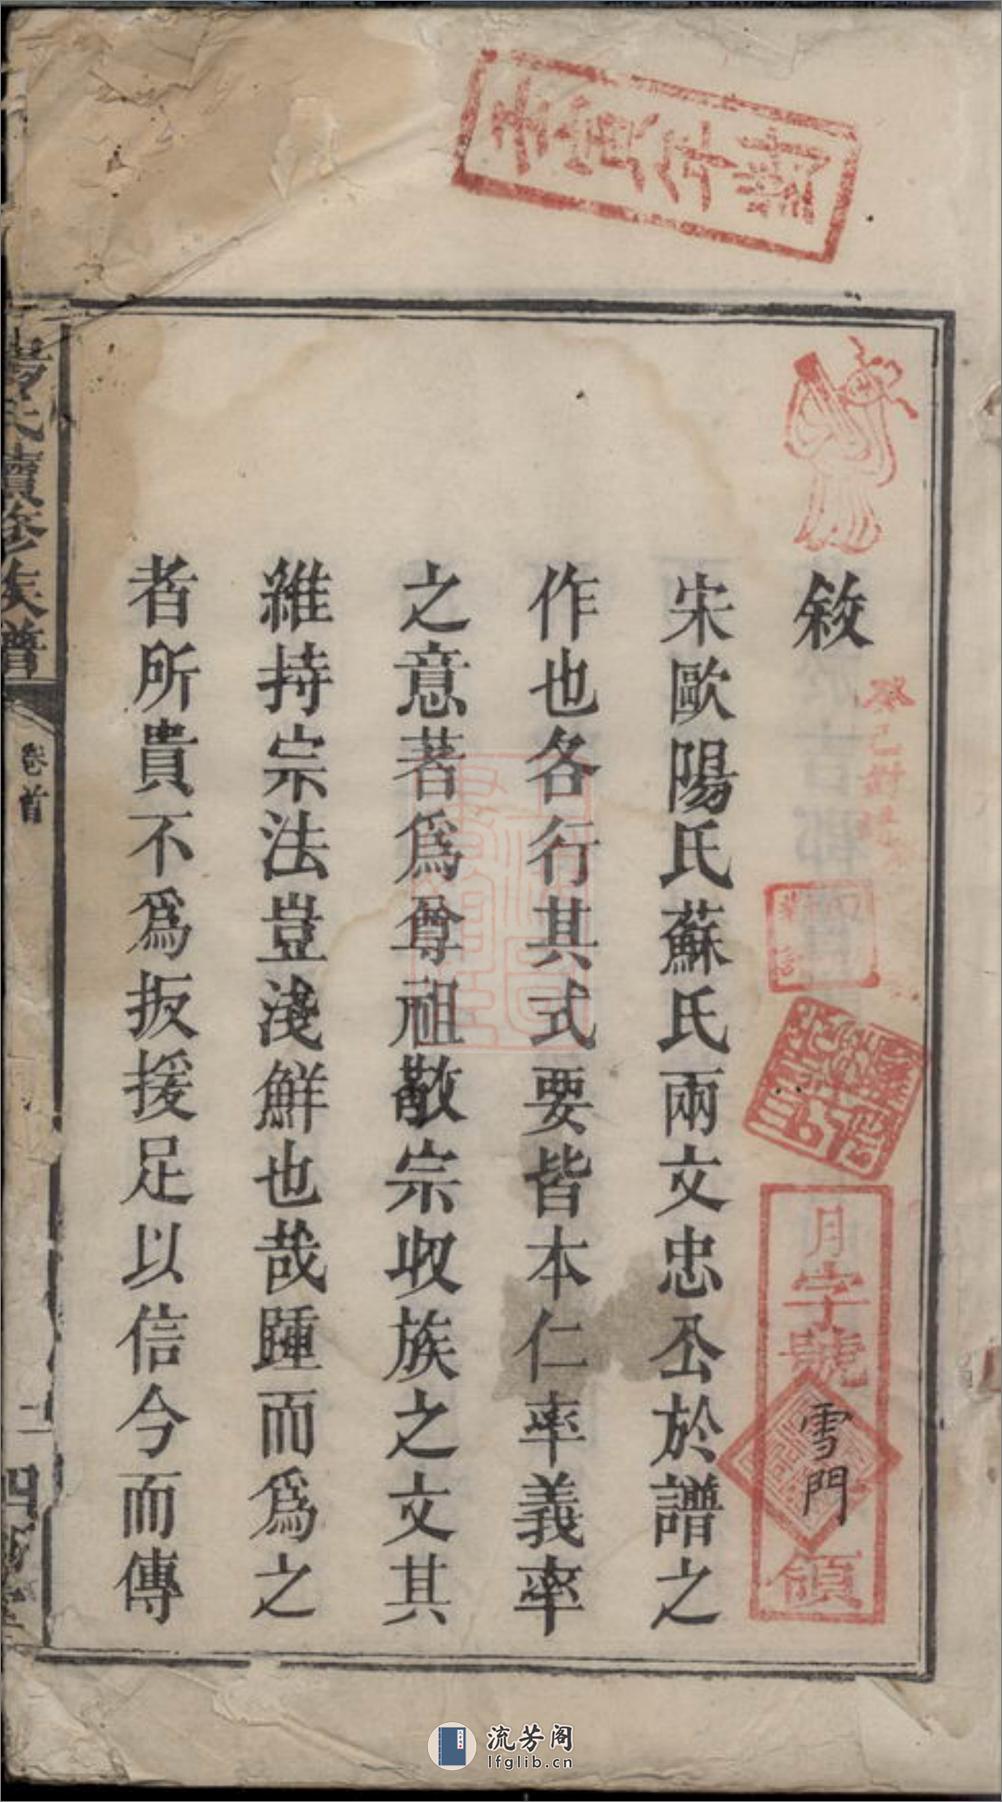 敘
宋歐陽氏蘇氏兩文忠公於譜之
作也各行其式要皆本仁率義率
之意著爲尊祖敬宗收族之文其
維持宗法豈淺鮮也哉踵而爲之
者所貴不爲扳援足以信今而傳
氏續修族譜
卷首
二
月字號
雪門
領
流芳阁
lfglib.cn